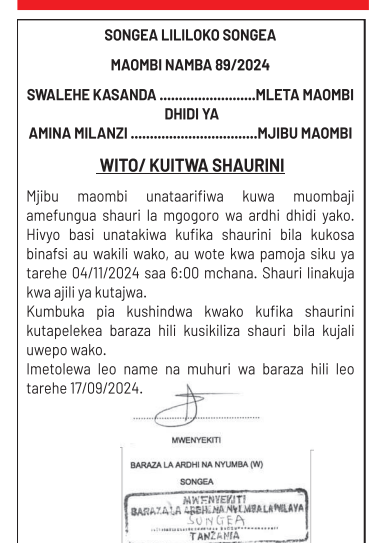 SONGEA LILILOKO SONGEA
MAOMBI NAMBA 89/2024
SWALEHE KASANDA .........................MLETA MAOMBI
DHIDI YA
AMINA MILANZI .................................MJIBU MAOMBI
WITO/ KUITWA SHAURINI
Mjibu maombi unataarifiwa kuwa muombaji
amefungua shauri la mgogoro wa ardhi dhidi yako.
Hivyo basi unatakiwa kufika shaurini bila kukosa
binafsi au wakili wako, au wote kwa pamoja siku ya
tarehe 04/11/2024 saa 6:00 mchana. Shauri linakuja
kwa ajili ya kutajwa.
Kumbuka pia kushindwa kwako kufika shaurini
kutapelekea baraza hili kusikiliza shauri bila kujali
uwepo wako.
Imetolewa leo name na muhuri wa baraza hili leo
tarehe 17/09/2024.
MWENYEKITI
BARAZA LA ARDHI NA NYUMBA (W)
SONGEA
MWENYEKITI
BARAZA LA ARDHI NA NYUMBA LA WILAYA
SONGEA
TANZANIA